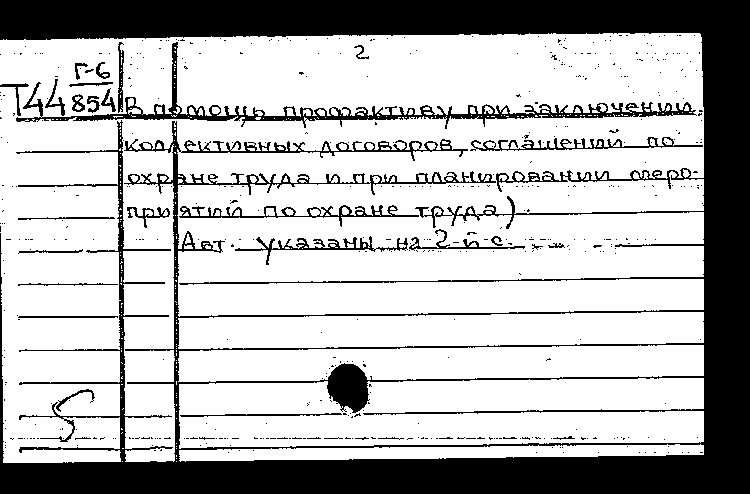 2
Г-6
Т44 854
В помощь профактиву при заключении
коллективных договоров, соглашений по
охране труда и при планировании меро-
приятий по охране труда).
Авт. указаны на 2-й с.